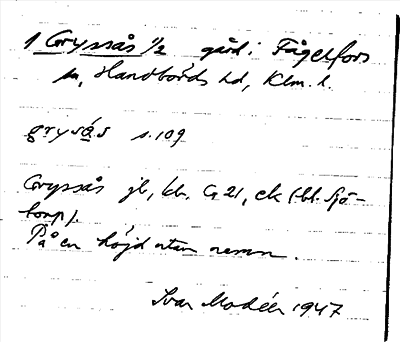 1 Gryssås 1/2 gård i Fågelfors
sn, Handbörds hd, Klm. l.
grysá̱s s. 109
Gryssås jb, kb. G 21, ek (-bl. Sjö-
torp).
På en höjd utan namn.
Ivar Modéer 1947